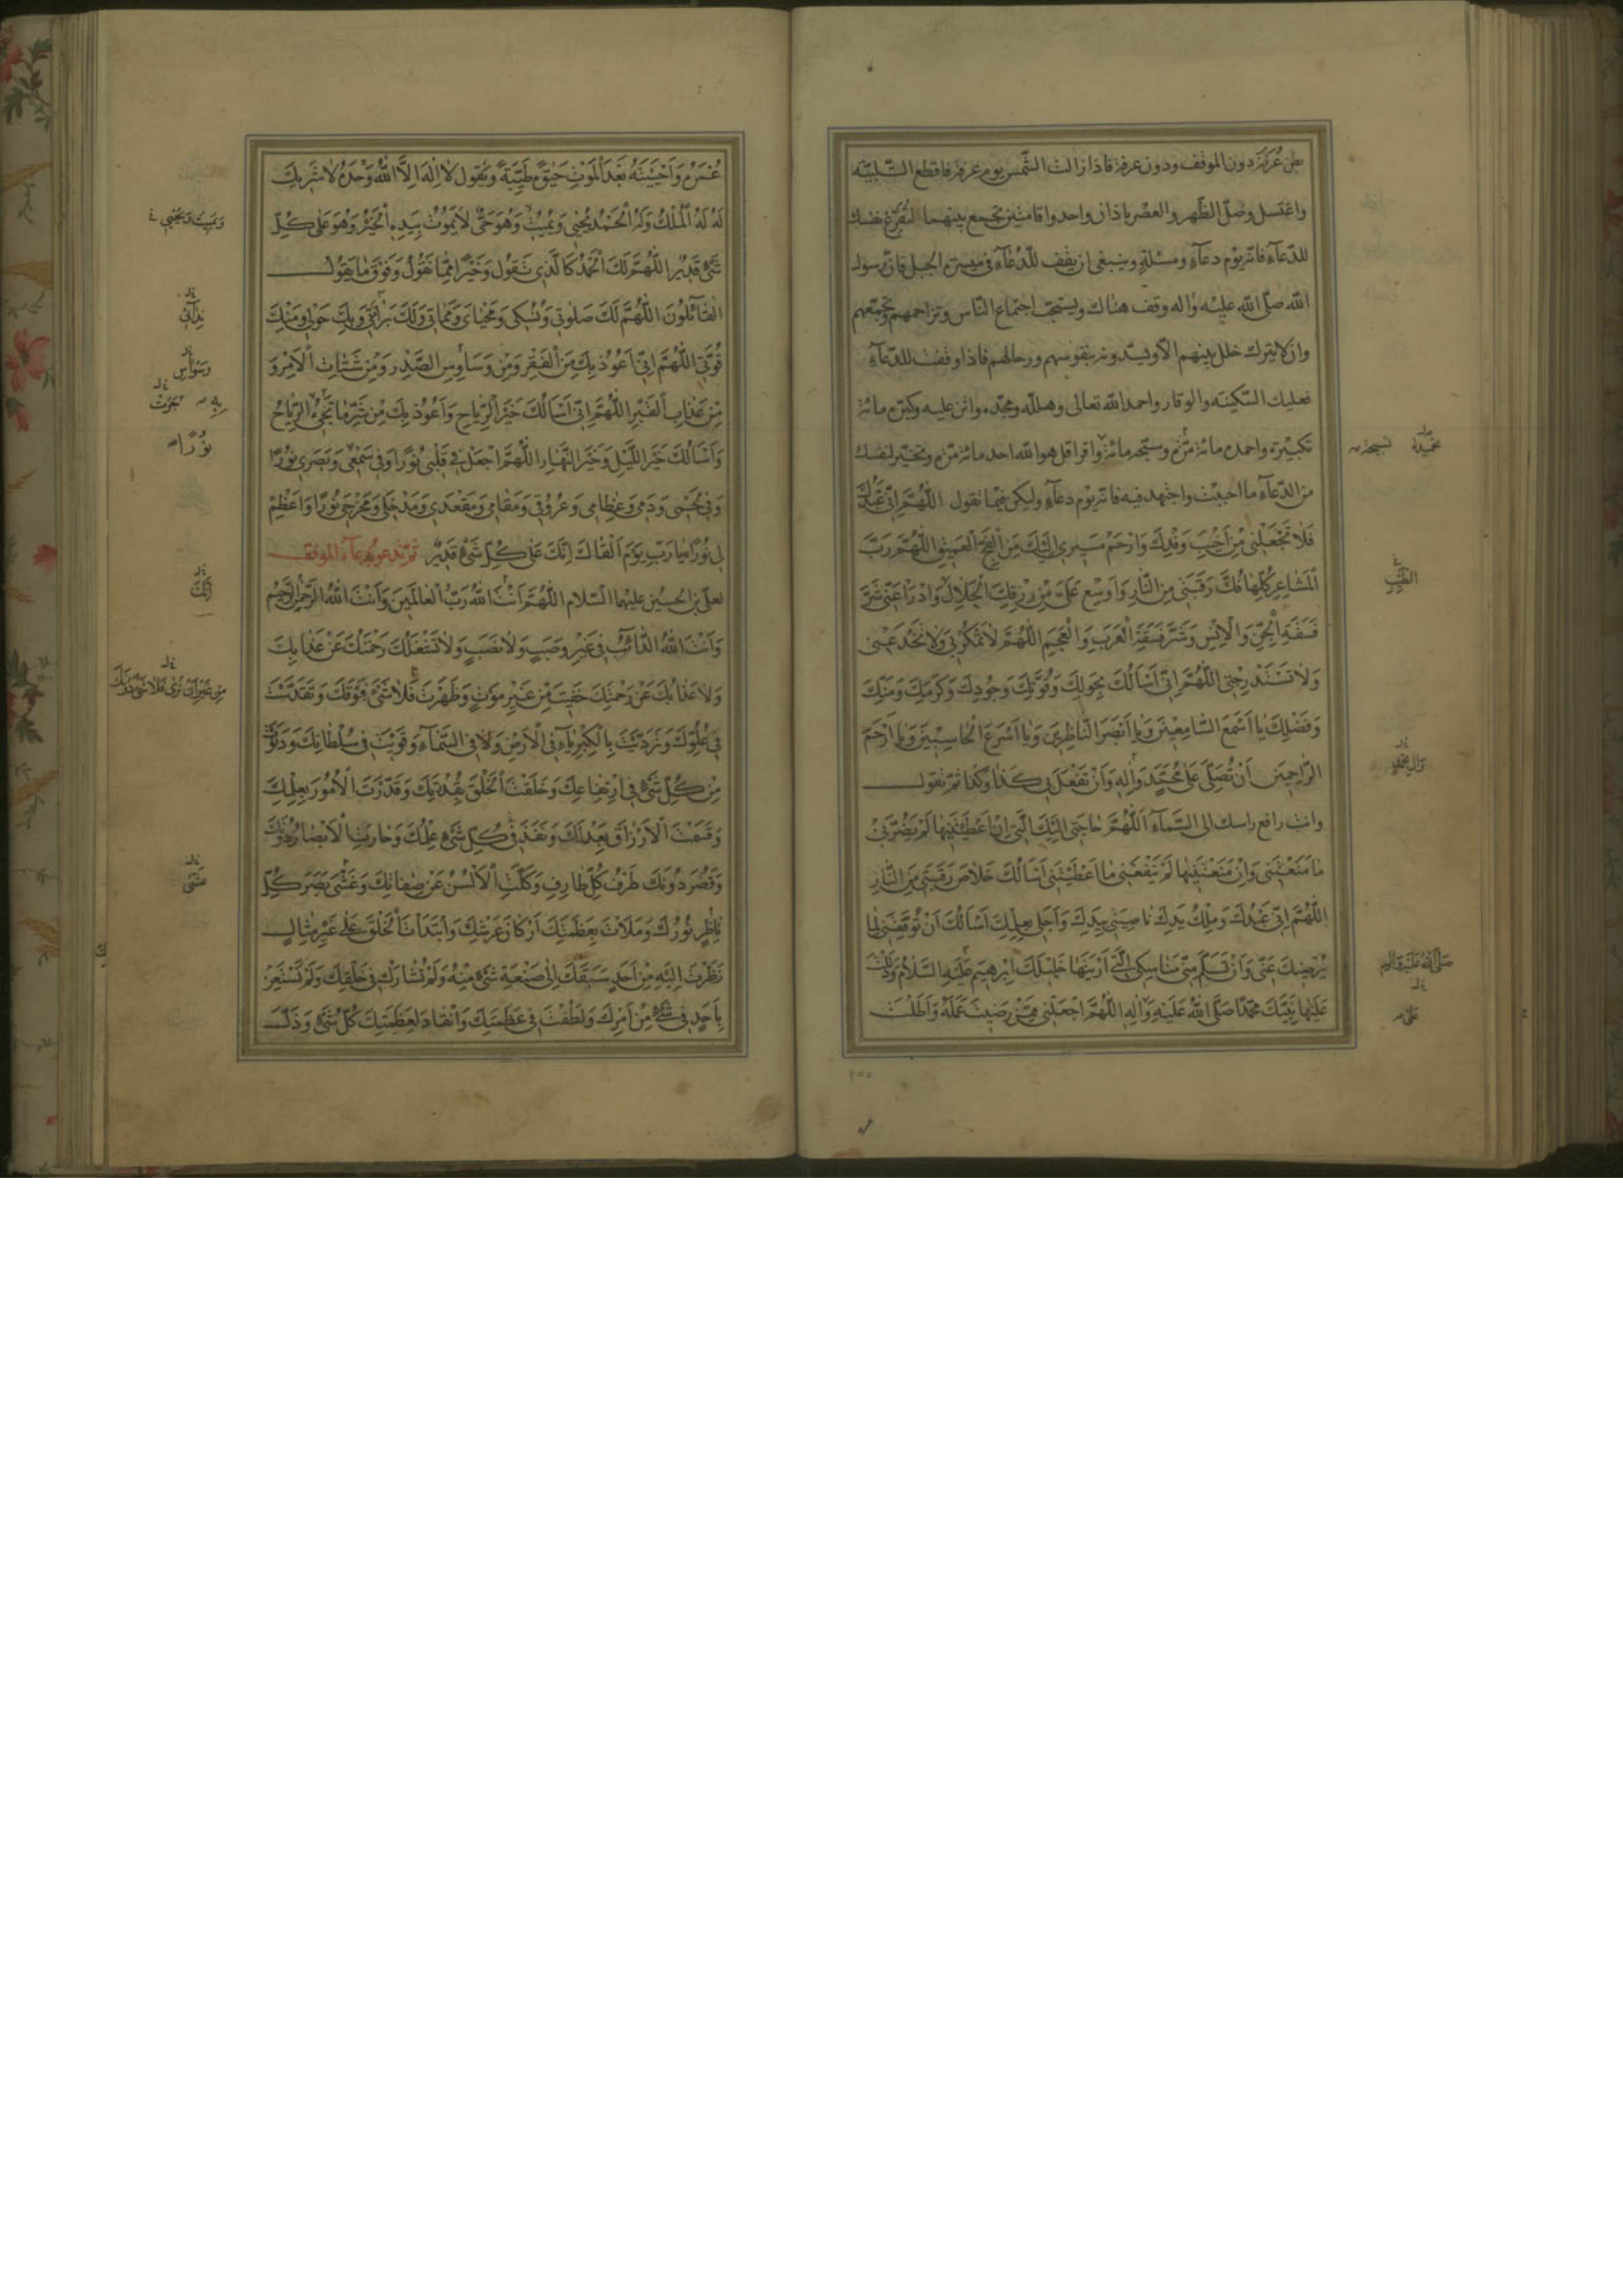 بطن عُرَنَة دون الموقف ودون عرفة فاذا زالت الشّمس يوم عرفة فاقطع التّلبية
واغتسل وصلّ الظّهر والعصر باذان واحد واقامتين تجمع بينهما لتفرّغ نفسك
للدّعآء فانّه يوم دعآء ومسئلة وينبغى ان يقف للدّعآء فى ميسرة الجبل فانّ رسول
الله صلّى الله عليه واله وقف هناك ويستحبّ اجتماع النّاس وتزاحمهم وتجمّعهم
وان لا يترك خلل بينهم الّا ويسدّونه بنفوسهم ورحالهم فاذا وقفت للدّعآء
فعليك السّكينة والوقار واحمد الله تعالى وهلّله ومجّده واثن عليه وكبّره مائة
تكبيرة واحمده مائة مرّة وسبّحه مائة مرّة واقرا قل هو الله احد مائة مرّة وتخيّر لنفسك
من الدّعآء ما احببت واجتهد فيه فانّه يوم دعآء وليكن فيما تقول اللّهُمَّ اِنّى عَبْدُكَ
فَلا تَجْعَلْنى مِنْ اَخْيَبِ وَفْدِكَ وَارْحَمْ مَسيرى اِلَيْكَ مِنَ الْفَجِّ الْعَميقِ اللّهُمَّ رَبَّ
الْمَشاعِرِ كُلِّها فُكَّ رَقَبَتى مِنَ النّارِ وَاَوْسِعْ عَلَىَّ مِنْ رِزْقِكَ الْحَلالِ وَادْرَأْ عَنّى شَرَّ
فَسَقَةِ الْجِنِّ وَالْاِنْسِ وَشَرَّ فَسَقَةِ الْعَرَبِ وَالْعَجَمِ اللّهُمَّ لا تَمْكُرْ بى وَلا تَخْدَعْنى
وَلا تَسْتَدْرِجْنى اللّهُمَّ اِنّى اَسْاَلُكَ بِحَوْلِكَ وَقُوَّتِكَ وَجُودِكَ وَكَرَمِكَ وَمَنِّكَ
وَفَضْلِكَ يا اَسْمَعَ السّامِعينَ وَيا اَبْصَرَ النّاظِرينَ وَيا اَسْرَعَ الْحاسِبينَ وَيا اَرْحَمَ
الرّاحِمينَ اَنْ تُصَلِّىَ عَلى مُحَمَّدٍ وَالِهِ وَاَنْ تَفْعَلَ بى كَذا وَكَذا ثمّ تقول
وانت رافع راسك الى السّمآء اَللّهُمَّ حاجَتى اِلَيْكَ الَّتى اِنْ اَعْطَيْتَنيها لَمْ يَضُرَّنى
ما مَنَعْتَنى وَاِنْ مَنَعْتَنيها لَمْ يَنْفَعْنى ما اَعْطَيْتَنى اَسْاَلُكَ خَلاصَ رَقَبَتى مِنَ النّارِ
اللّهُمَّ اِنّى عَبْدُكَ وَمِلْكُ يَدِكَ ناصِيَتى بِيَدِكَ وَاَجَلى بِعِلْمِكَ اَسْاَلُكَ اَنْ تُوَفِّقَنى لِما
يُرْضيكَ عَنّى وَاَنْ تُسَلِّمَ مِنّى مَناسِكِىَ الَّتى اَرَيْتَها خَليلَكَ اِبْرهيمَ عَلَيْهِ السَّلامُ وَدَلَلْتَ
عَلَيْها نَبِيَّكَ مُحَمَّدًا صَلَّى اللهُ عَلَيْهِ وَالِهِ اللّهُمَّ اجْعَلْنى مِمَّنْ رَضيتَ عَمَلَهُ وَاَطَلْتَ
تحميدة تسبيحة
وَالِ مُحَمَّدٍ
صَلَّى اللهُ عَلَيْهِ وَالِهِ
٢٥٥
عُمْرَهُ وَاَحْيَيْتَهُ بَعْدَ الْمَوْتِ حَيوةً طَيِّبَةً وتقول لا اِلهَ اِلَّا اللهُ وَحْدَهُ لا شَريكَ
لَهُ لَهُ الْمُلْكُ وَلَهُ الْحَمْدُ يُحْيى وَيُميتُ وَهُوَ حَىٌّ لا يَمُوتُ بِيَدِهِ الْخَيْرُ وَهُوَ عَلى كُلِّ
شَىْءٍ قَديرٌ اللّهُمَّ لَكَ الْحَمْدُ كَالَّذى تَقُولُ وَخَيْرًا مِمّا نَقُولُ وَفَوْقَ ما يَقُولُ
الْقآئِلُونَ اللّهُمَّ لَكَ صَلوتى وَنُسُكى وَمَحْياىَ وَمَماتى وَلَكَ بَرآئَتى وَبِكَ حَوْلى وَمِنْكَ
قُوَّتى اللّهُمَّ اِنّى اَعُوذُ بِكَ مِنَ الْفَقْرِ وَمِنْ وَساوِسِ الصَّدْرِ وَمِنْ شَتاتِ الْاَمْرِ وَ
مِنْ عَذابِ الْقَبْرِ اللّهُمَّ اِنّى اَسْاَلُكَ خَيْرَ الرِّياحِ وَاَعُوذُ بِكَ مِنْ شَرِّ ما تَجىءُ الرِّياحُ
وَاَسْاَلُكَ خَيْرَ اللَّيْلِ وَخَيْرَ النَّهارِ اللّهُمَّ اجْعَلْ فى قَلْبى نُورًا وَفى سَمْعى وَبَصَرى نُورًا
وَفى لَحْمى وَدَمى وَعِظامى وَعُرُوقى وَمَقامى وَمَقْعَدى وَمَدْخَلى وَمَخْرَجى نُورًا وَاَعْظِمْ
لى نُورًا يا رَبِّ يَوْمَ اَلْقاكَ اِنَّكَ عَلى كُلِّ شَىْءٍ قَديرٌ ثمّ تدعو بدعآء الموقف
لعلىّ بن الحسين عليهما السّلام اللّهُمَّ اَنْتَ اللهُ رَبُّ الْعالَمينَ وَاَنْتَ اللهُ الرَّحْمنُ الرَّحيمُ
وَاَنْتَ اللهُ الدّآئِبُ فى غَيْرِ وَصَبٍ وَلا نَصَبٍ وَلا تَشْغَلُكَ رَحْمَتُكَ عَنْ عَذابِكَ
وَلا عَذابُكَ عَنْ رَحْمَتِكَ خَفيتَ مِنْ غَيْرِ مَوْتٍ وَظَهَرْتَ فَلا شَىْءَ فَوْقَكَ وَتَقَدَّسْتَ
فى عُلُوِّكَ وَتَرَدَّيْتَ بِالْكِبْرِيآءِ فى الْاَرْضِ وَلا فى السَّمآءِ وَقَوِيتَ فى سُلْطانِكَ وَدَنَوْتَ
مِنْ كُلِّ شَىْءٍ فى ارْتِفاعِكَ وَخَلَقْتَ الْخَلْقَ بِقُدْرَتِكَ وَقَدَّرْتَ الْاُمُورَ بِعِلْمِكَ
وَقَسَمْتَ الْاَرْزاقَ بِعَدْلِكَ وَنَفَذَ فى كُلِّ شَىْءٍ عِلْمُكَ وَحارَتِ الْاَبْصارُ دُونَكَ
وَقَصُرَ دُونَكَ طَرْفُ كُلِّ طارِفٍ وَكَلَّتِ الْاَلْسُنُ عَنْ صِفاتِكَ وَغَشّى بَصَرَ كُلِّ
ناظِرٍ نُورُكَ وَمَلَاْتَ بِعَظَمَتِكَ اَرْكانَ عَرْشِكَ وَابْتَدَاْتَ الْخَلْقَ عَلى غَيْرِ مِثالٍ
نَظَرْتَ اِلَيْهِ مِنْ اَحَدٍ سَبَقَكَ اِلى صَنْعَةِ شَىْءٍ مِنْهُ وَلَمْ تُشارَكْ فى خَلْقِكَ وَلَمْ تَسْتَعِنْ
بِاَحَدٍ فى شَىْءٍ مِنْ اَمْرِكَ وَلَطُفْتَ فى عَظَمَتِكَ وَانْقادَ لِعَظَمَتِكَ كُلُّ شَىْءٍ وَذَلَّ
وَيُميتُ وَيُحْيى
وَسْواسِ
نُورًا